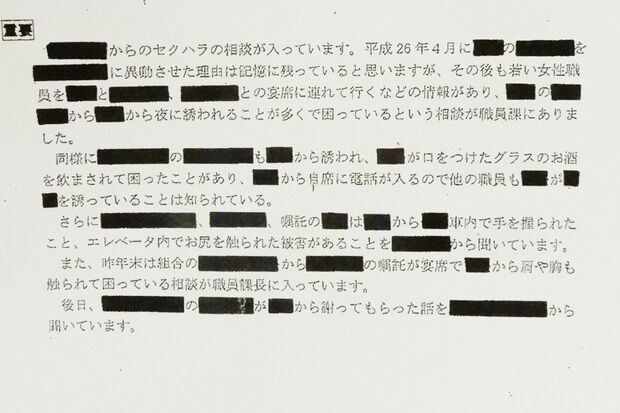 重要
からのセクハラの相談が入っています。平成26年4月に の を
に異動させた理由は記憶に残っていると思いますが、その後も若い女性職
員を と 、 との宴席に連れて行くなどの情報があり、 の
から から夜に誘われることが多くて困っているという相談が職員課にありま
した。
同様に の も から誘われ、 が口をつけたグラスのお酒
を飲まされて困ったことがあり、 から自席に電話が入るので他の職員も が
を誘っていることは知られている。
さらに 、 、嘱託の は から 車内で手を握られた
こと、エレベータ内でお尻を触られた被害があることを から聞いています。
また、昨年末は組合の から の嘱託が宴席で から肩や胸も
触られて困っている相談が職員課長に入っています。
後日、 の が から謝ってもらった話を から
聞いています。